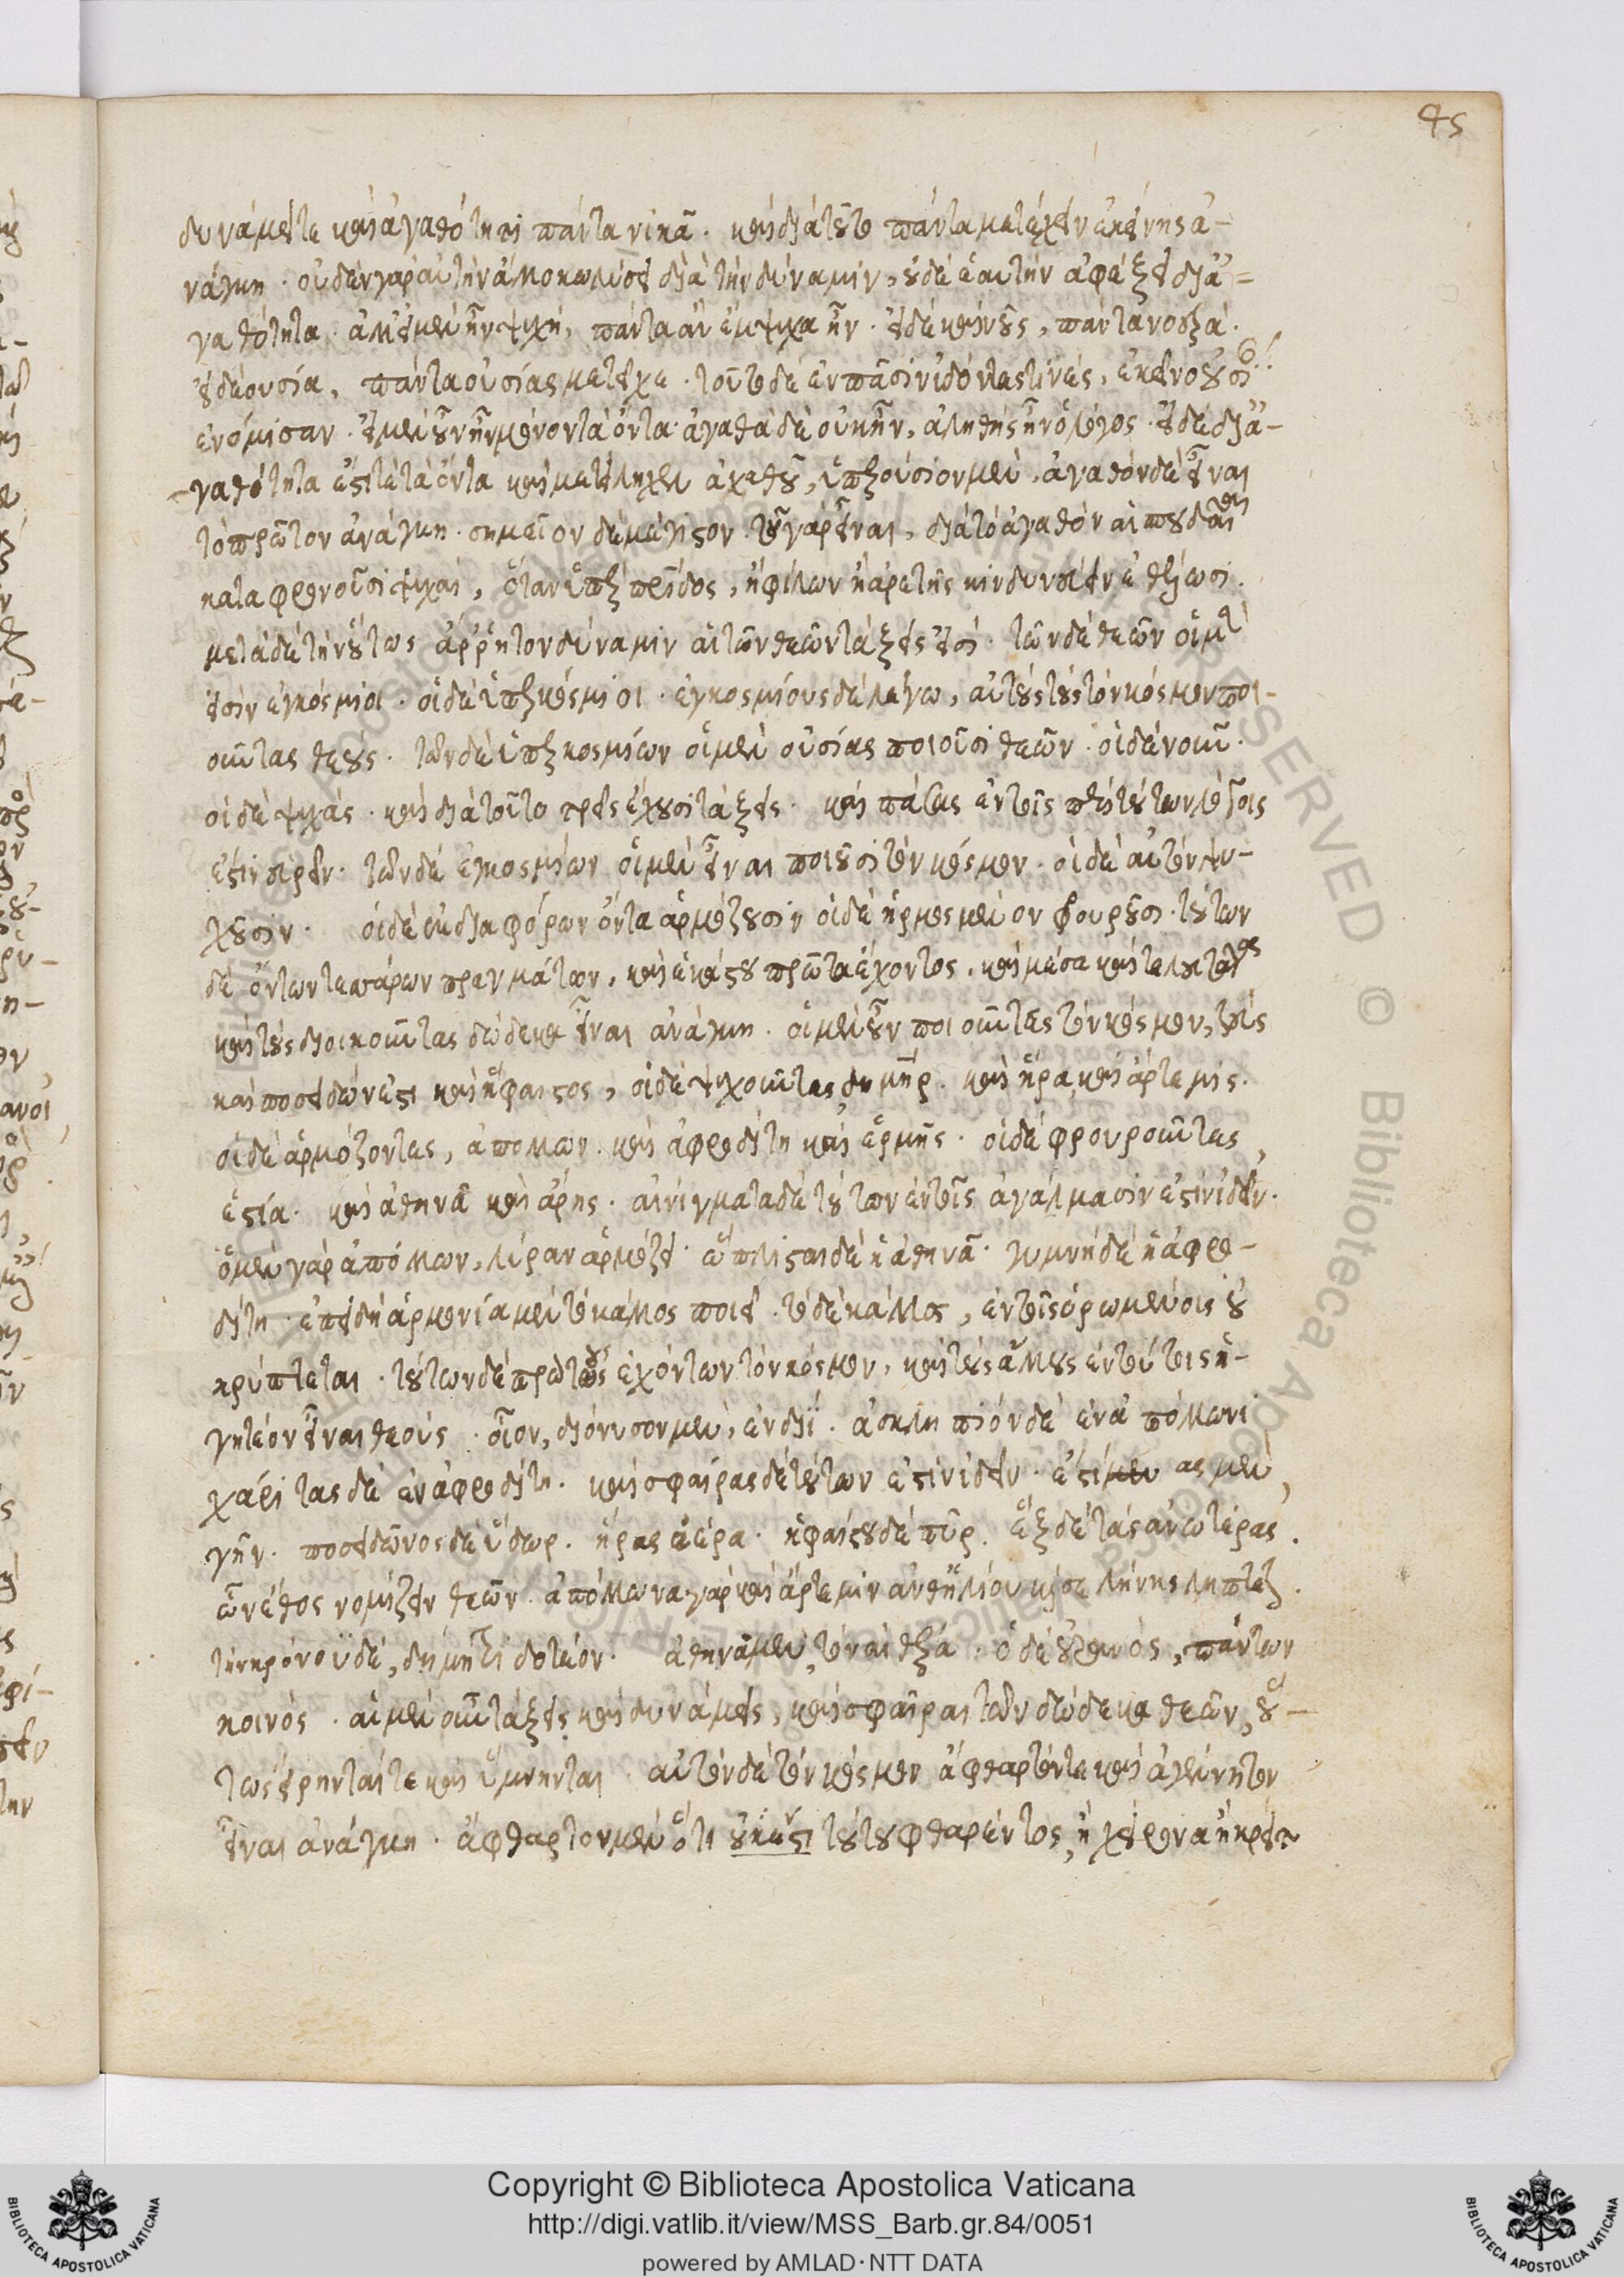 45
δυνάμει τε καὶ ἀγαθότητι πάντα νικᾷ. καὶ διὰ τοῦτο πάντα μετέχειν ἐκείνης ἀ-
νάγκη. οὐδὲν γὰρ αὐτὴν ἄλλο κωλύσει διὰ τὴν δύναμιν, οὐδὲ ἑαυτὴν ἀφέξει δι' ἀ=
γαθότητα. ἀλλ' εἰ μὲν ἦν ψυχή, πάντα ἂν ἔμψυχα ἦν. εἰ δὲ καὶ νοῦς, πάντα νοερά.
εἰ δὲ οὐσία, πάντα οὐσίας μετεῖχε. τοῦτο δὲ ἐν πᾶσιν ἰδόντες τινὲς, ἐκεῖνο οὐσί
ἐνόμισαν. εἰ μὲν οὖν ἦν μόνον τὰ ὄντα. ἀγαθὰ δὲ οὐκ ἦν, ἀληθὴς ἦν ὁ λόγος. εἰ δὲ δι' ἀ-
-γαθότητα ἔστι τὲ τὰ ὄντα καὶ μετείληχεν ἀγαθοῦ, ὑπερούσιον μὲν, ἀγαθὸν δὲ εἶναι
τὸ πρῶτον ἀνάγκη. σημεῖον δὲ μέγιστον. τοῦ γὰρ εἶναι, διὰ τὸ ἀγαθὸν αἱ σπουδαῖαι
καταφρονοῦσι ψυχαὶ, ὅταν ὑπὲρ πατρίδος, ἢ φίλων ἢ ἀρετῆς κινδυνεύειν ἐθέλωσι.
μετὰ δὲ τὴν οὕτως ἄρρητον δύναμιν αἱ τῶν θεῶν τάξεις εἰσί. τῶν δὲ θεῶν οἱ μὲν
εἰσὶν ἐγκόσμιοι. οἱ δὲ ὑπερκόσμιοι. ἐγκοσμίους δὲ λέγω, αὐτοὺς τοὺς τὸν κόσμον ποι-
οῦντας θεοὺς. τῶν δὲ ὑπερκοσμίων οἱ μὲν οὐσίας ποιοῦσι θεῶν. οἱ δὲ νοῦν.
οἱ δὲ ψυχάς. καὶ διὰ τοῦτο τρεῖς ἔχουσι τάξεις. καὶ πάσας ἐν τοῖς περὶ τούτων λόγοις
ἔστιν εὑρεῖν. τῶν δὲ ἐγκοσμίων οἱ μὲν εἶναι ποιοῦσι τὸν κόσμον. οἱ δὲ αὐτὸν ψυ-
χοῦσιν. οἱ δὲ ἐκ διαφόρων ὄντα ἁρμόζουσιν οἱ δὲ ἡρμοσμένον φρουροῦσι. τούτων
δὲ ὄντων τεσσάρων πραγμάτων, καὶ ἑκάστου πρῶτα ἔχοντος, καὶ μέσα καὶ τελευταῖα
καὶ τοὺς διοικοῦντας δώδεκα εἶναι ἀνάγκη. οἱ μὲν οὖν ποιοῦντες τὸν κόσμον, ζεὺς
καὶ ποσειδῶν ἐστι καὶ ἥφαιστος, οἱ δὲ ψυχοῦντες δημήτηρ. καὶ ἥρα καὶ ἄρτεμις.
οἱ δὲ ἁρμόζοντες, ἀπόλλων. καὶ ἀφροδίτη καὶ ἑρμῆς. οἱ δὲ φρουροῦντες,
ἑστία. καὶ ἀθηνᾶ καὶ ἄρης. αἰνίγματα δὲ τούτων ἐν τοῖς ἀγάλμασιν ἔστιν ἰδεῖν.
ὁ μὲν γὰρ ἀπόλλων, λύραν ἁρμόζει. ὥπλισται δὲ ἡ ἀθηνᾶ. γυμνὴ δὲ ἡ ἀφρο-
δίτη. ἐπειδὴ ἁρμονία μὲν τὸ κάλλος ποιεῖ. τὸ δὲ κάλλος, ἐν τοῖς ὁρωμένοις οὐ
κρύπτεται. τούτων δὲ πρώτως ἐχόντων τὸν κόσμον, καὶ τοὺς ἄλλους ἐν τούτοις ἡ-
γητέον εἶναι θεούς. οἷον, διόνυσον μὲν, ἐν διΐ. ἀσκληπιὸν δὲ ἐν ἀπόλλωνι
χάριτας δὲ ἐν ἀφροδίτῃ. καὶ σφαίρας δὲ τούτων ἔστιν ἰδεῖν. ἑστίας μὲν,
γῆν. ποσειδῶνος δὲ ὕδωρ. ἥρας ἀέρα. ἡφαίστου δὲ πῦρ. ἓξ δὲ τὰς ἀνωτέρας.
ὧν ἔθος νομίζειν θεῶν. ἀπόλλωνα γὰρ καὶ ἄρτεμιν ἀνθ' ἡλίου καὶ σελήνης ληπτέον.
τὴν κρόνου δὲ, δήμητρι δοτέον. ἀθηνᾷ μὲν, τὸν αἰθέρα. ὁ δὲ οὐρανὸς, πάντων
κοινός. αἱ μὲν οὖν τάξεις καὶ δυνάμεις, καὶ σφαῖραι τῶν δώδεκα θεῶν, οὕ-
τως εἴρηνταί τε καὶ ὕμνηνται. αὐτὸν δὲ τὸν κόσμον ἄφθαρτόν τε καὶ ἀγέννητον
εἶναι ἀνάγκη. ἄφθαρτον μὲν ὅτι οὐκ ἔστι τούτου φθαρέντος, ἢ χείρονα ἢ κρείτ
Copyright © Biblioteca Apostolica Vaticana
http://digi.vatlib.it/view/MSS_Barb.gr.84/0051
powered by AMLAD · NTT DATA
BIBLIOTECA APOSTOLICA VATICANA
BIBLIOTECA APOSTOLICA VATICANA